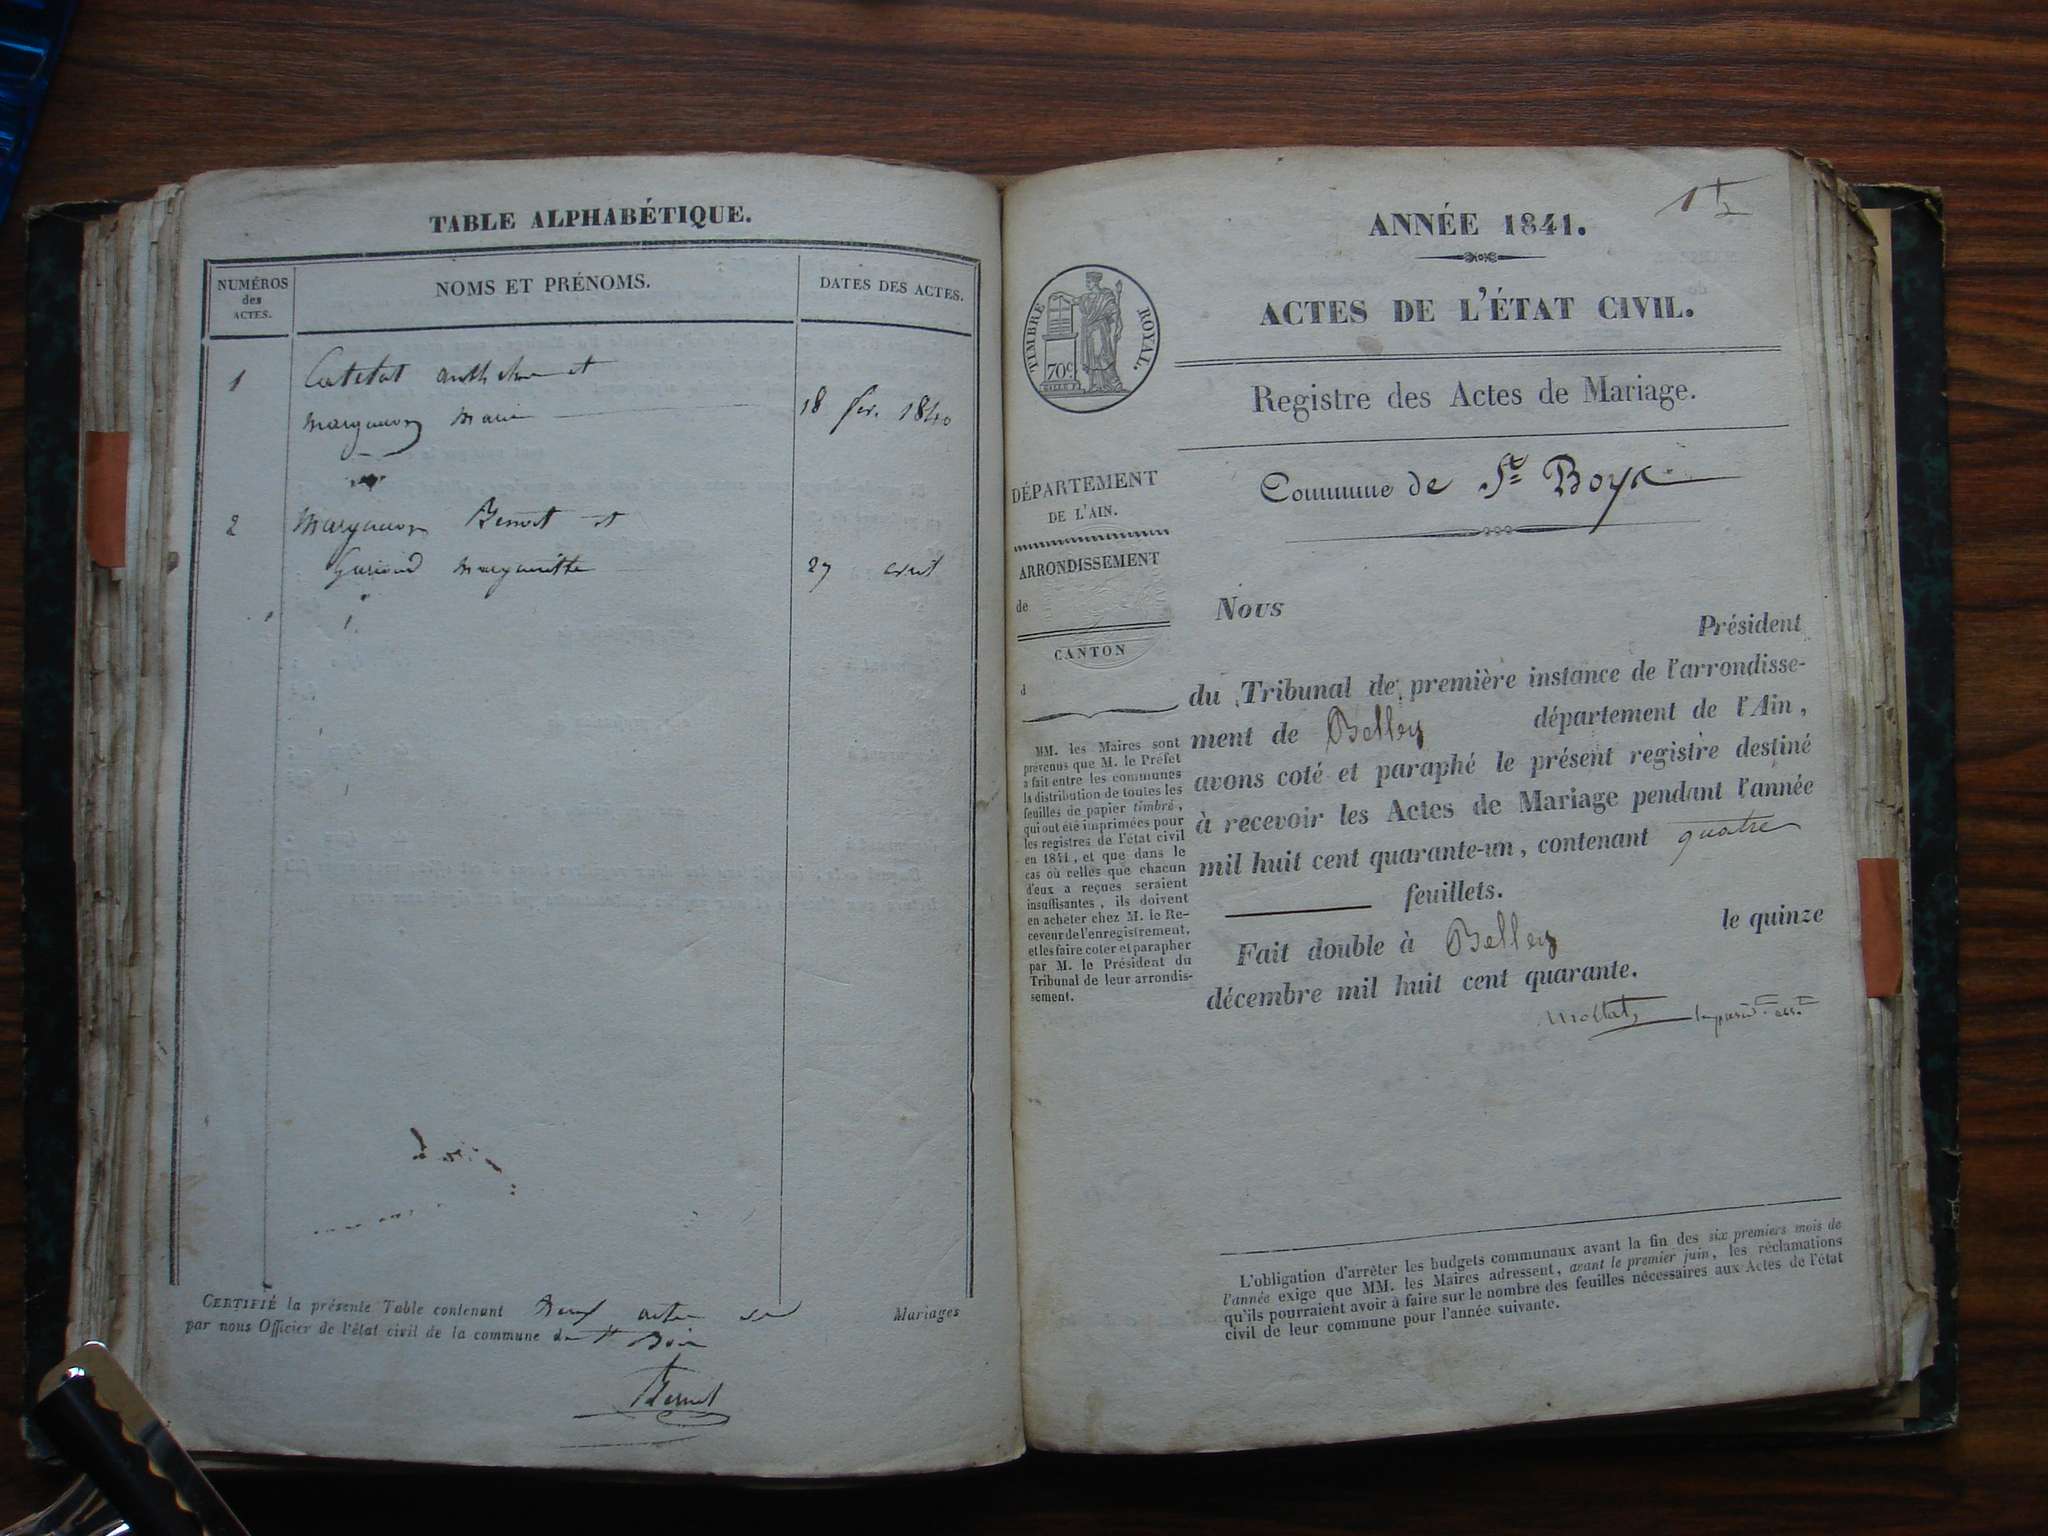 TABLE ALPHABÉTIQUE.
NUMÉROS
des
ACTES.
NOMS ET PRÉNOMS.
DATES DES ACTES.
1 et
Marie 18 fev. 1840
2 Benoit et
Margueritte 27
CERTIFIÉ la présente Table contenant Deux actes de Mariages
par nous Officier de l'état civil de la commune de St Bois
ANNÉE 1841.
ACTES DE L'ÉTAT CIVIL.
TIMBRE ROYAL.
70c
Registre des Actes de Mariage.
Commune de St Boys
DÉPARTEMENT
DE L'AIN.
ARRONDISSEMENT
de
CANTON
d
MM. les Maires sont
prévenus que M. le Préfet
a fait entre les communes
la distribution de toutes les
feuilles de papier timbré,
qui ont été imprimées pour
les registres de l'état civil
en 1841, et que dans le
cas où celles que chacun
d'eux a reçues seraient
insuffisantes, ils doivent
en acheter chez M. le Re-
ceveur de l'enregistrement,
et les faire coter et parapher
par M. le Président du
Tribunal de leur arrondis-
sement.
Nous Président
du Tribunal de première instance de l'arrondisse-
ment de Belley département de l'Ain,
avons coté et paraphé le présent registre destiné
à recevoir les Actes de Mariage pendant l'année
mil huit cent quarante-un, contenant quatre
feuillets.
Fait double à Belley le quinze
décembre mil huit cent quarante.
L'obligation d'arrêter les budgets communaux avant la fin des six premiers mois de
l'année exige que MM. les Maires adressent, avant le premier juin, les réclamations
qu'ils pourraient avoir à faire sur le nombre des feuilles nécessaires aux Actes de l'état
civil de leur commune pour l'année suivante.